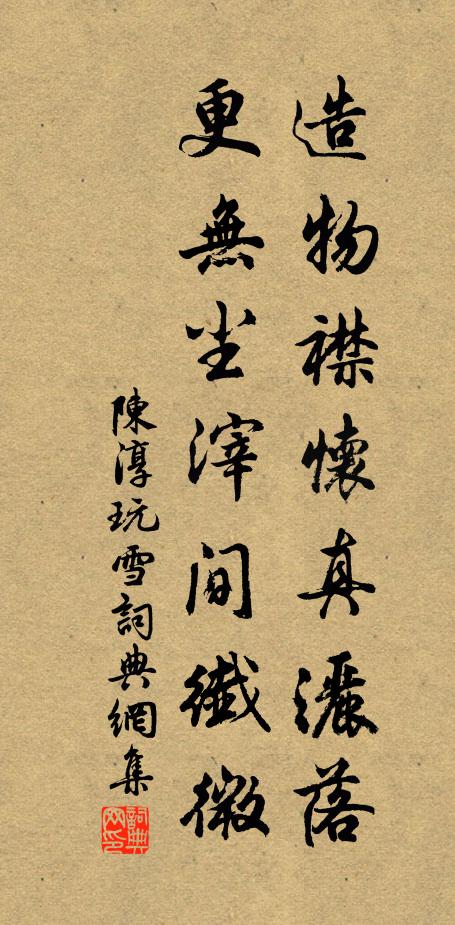 造物襟懷真灑落
更無尘滓间纖微
陳淳玩雪詞典網集
詞典网印